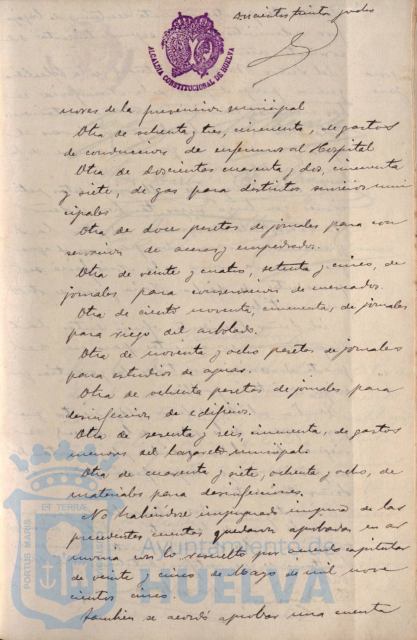 ALCALDIA CONSTITUCIONAL DE HUELVA
Doscientos treinta y ocho
nores de la prevencion municipal
Otra de ochenta y tres, cincuenta, de gastos
de conduccion de enfermos al Hospital
Otra de doscientas cuarenta y dos, cincuenta
y siete, de gas para distintos servicios muni
cipales
Otra de doce pesetas de jornales para con
servacion de aceras y empedrados.
Otra de veinte y cuatro, setenta y cinco, de
jornales para conservacion de mercados.
Otra de ciento noventa, cincuenta, de jornales
para riego del arbolado.
Otra de noventa y ocho pesetas de jornales
para estudios de aguas.
Otra de ochenta pesetas de jornales para
desinfeccion de edificios.
Otra de sesenta y seis, cincuenta, de gastos
menores del Lazareto municipal
Otra de cuarenta y siete, ochenta y ocho, de
materiales para desinfecciones.
No habiéndose impugnado ninguna de las
precedentes cuentas quedaron aprobadas en ar
monia con lo resuelto por cabildo capitular
de veinte y cinco de Mayo de mil nove
cientos cinco.
Tambien se acordó aprobar una cuenta
PORTUS MARIS
ET TERRAE
Ayuntamiento de
HUELVA